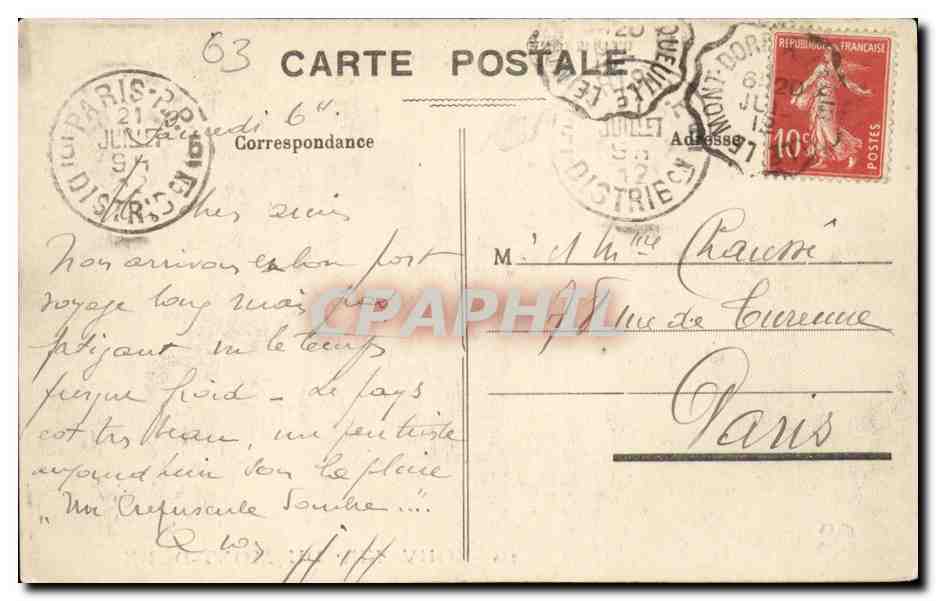 63
CARTE POSTALE
Correspondance
Adresse
Samedi 6
chers amis
Nous arrivons en bon port
voyage long mais pas
fatigant vu le temps
presque froid – Le pays
est très beau, un peu triste
aujourd'hui sous la pluie
"Un Crépuscule Sombre....
M
Chaussé
rue de Turenne
Paris
RÉPUBLIQUE FRANÇAISE
10c
POSTES
PARIS
21
JUIL
12
DISTRIB
LE MONT-DORE
QUEUILLE
JUILLET
12
DISTRIB
CPAPHIL